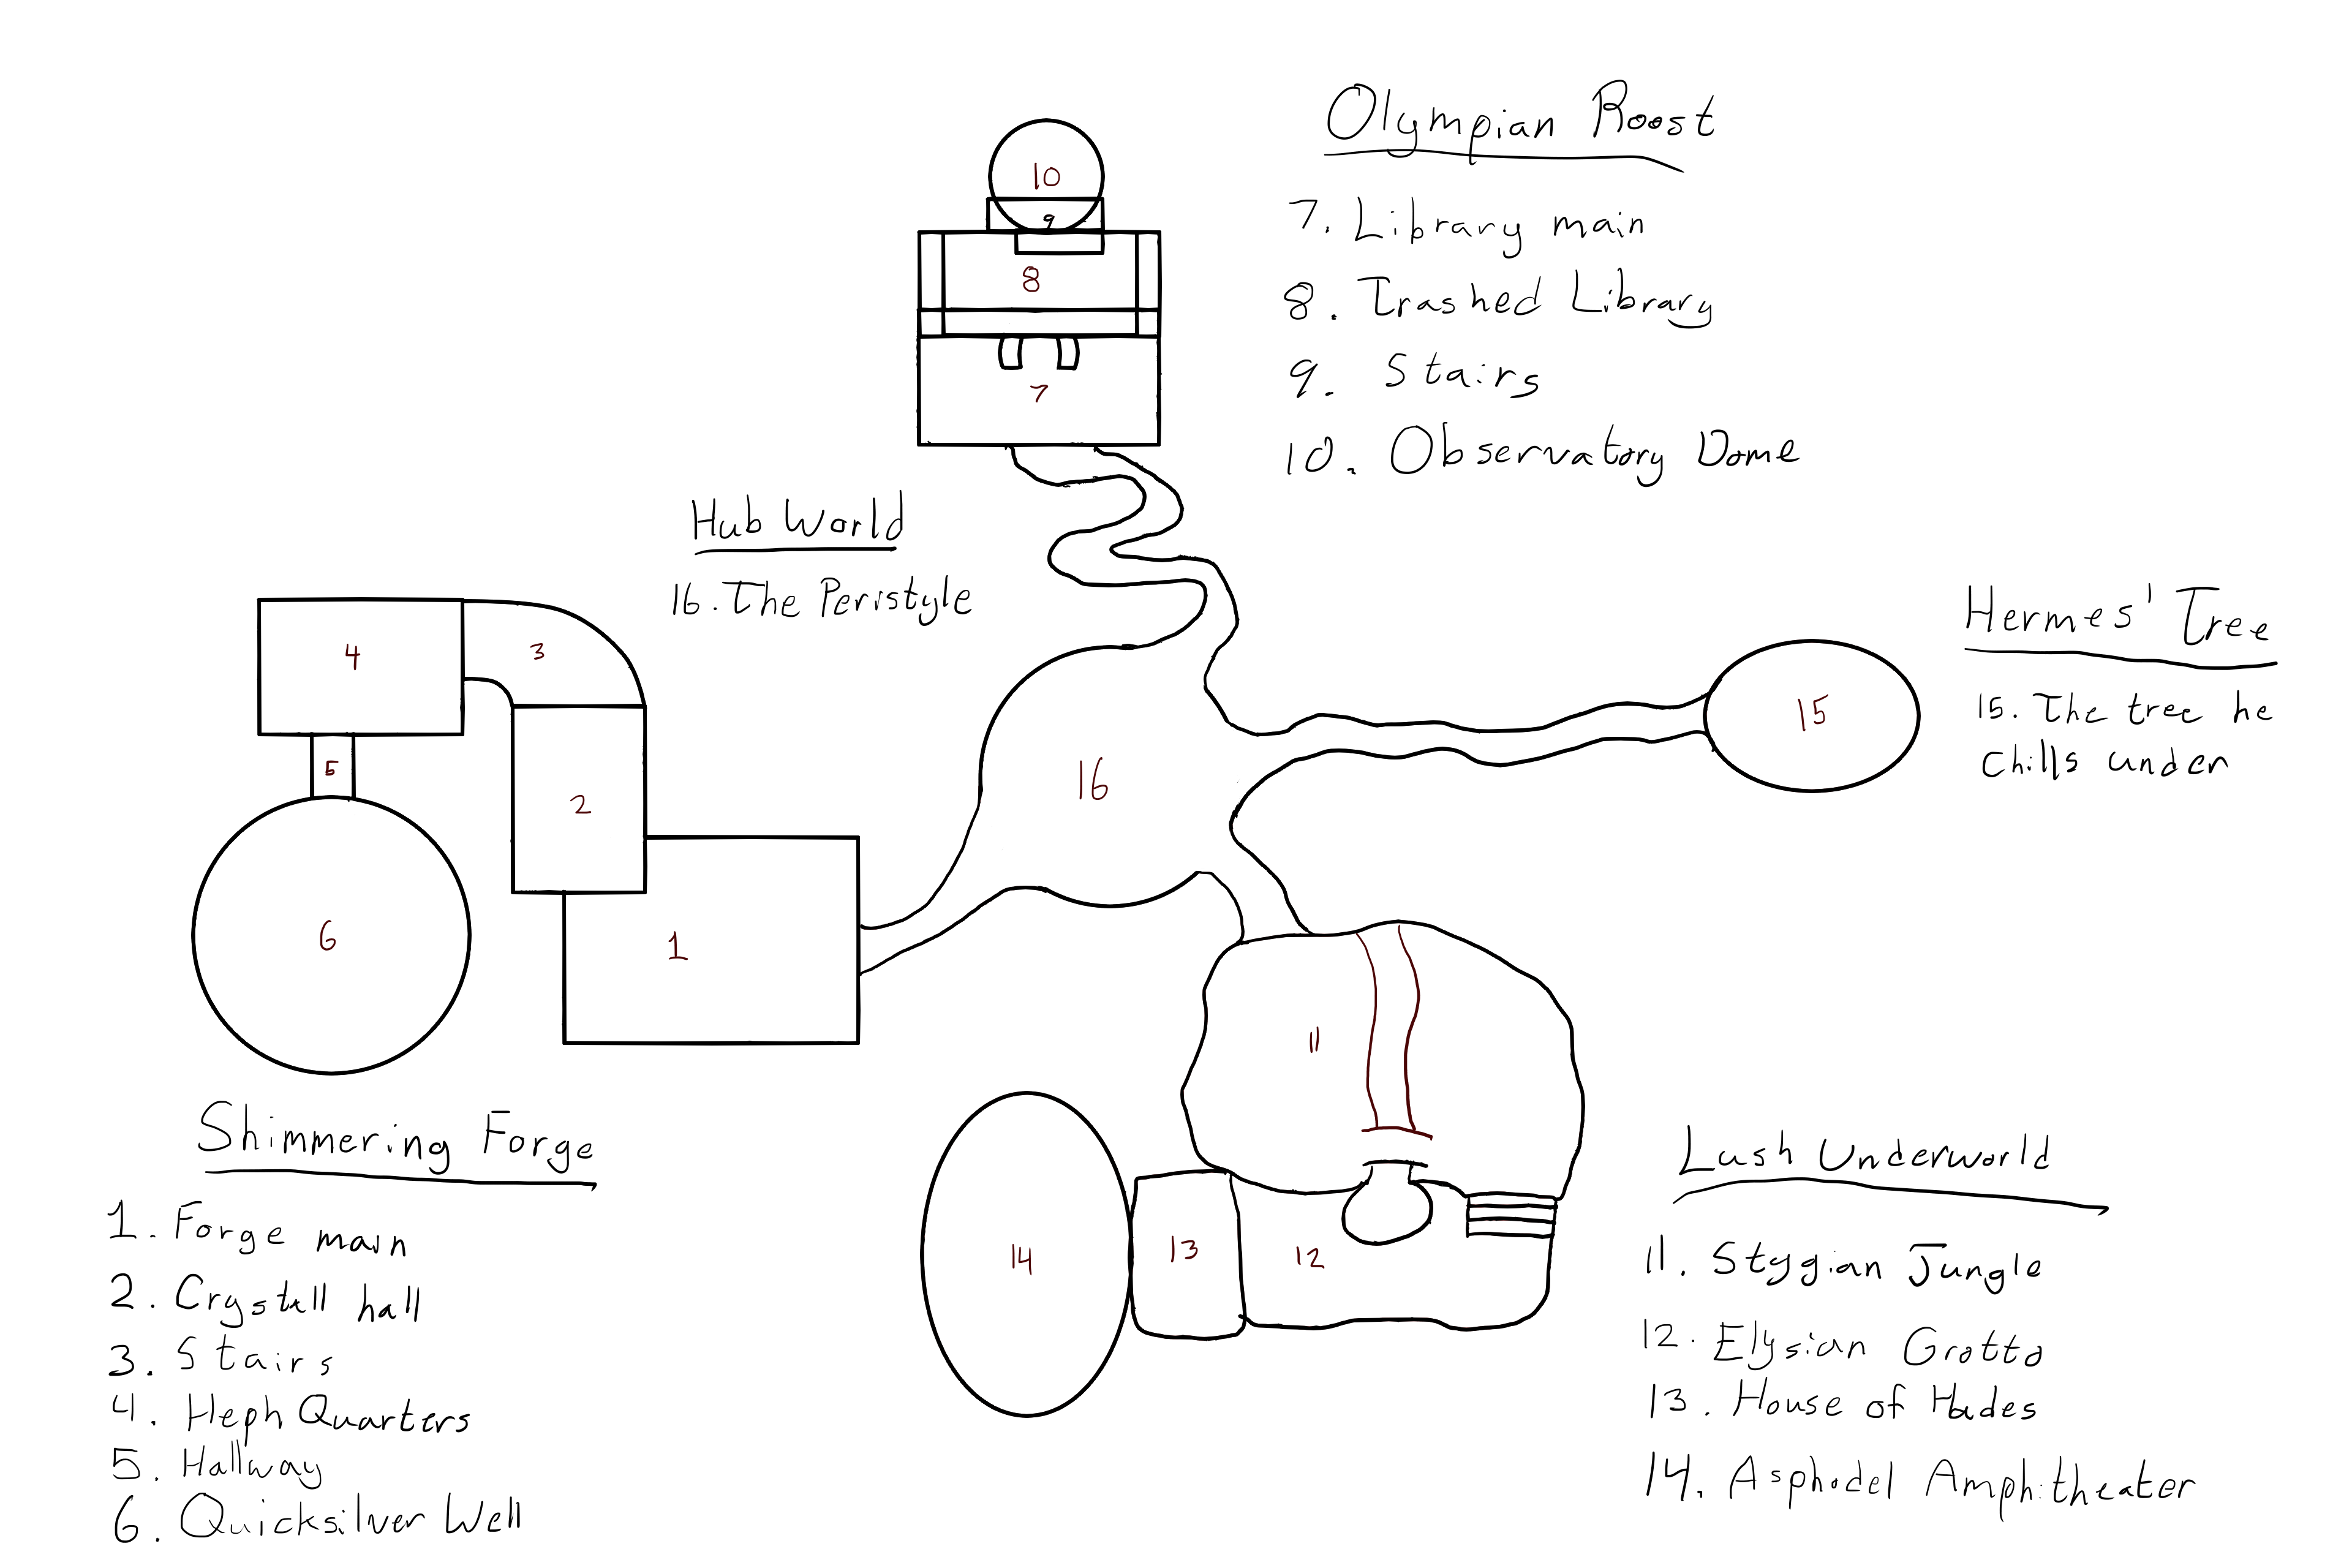 Olympian Roost
7. Library main
8. Trashed Library
9. Stairs
10. Observatory Dome
10
9
8
7
Hub World
16. The Peristyle
Hermes' Tree
15. The tree he
chills under
4
3
5
2
6
1
16
15
11
12
13
14
Shimmering Forge
1. Forge main
2. Crystall hall
3. Stairs
4. Heph Quarters
5. Hallway
6. Quicksilver Well
Lush Underworld
11. Stygian Jungle
12. Elysian Grotto
13. House of Hades
14. Asphodel Amphitheater